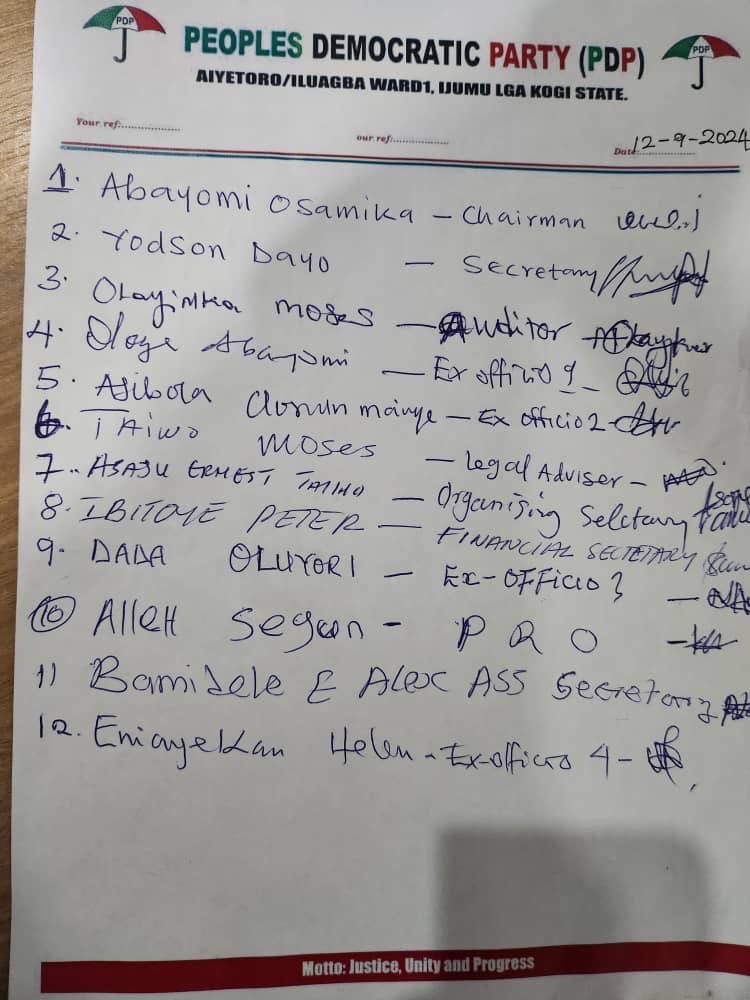 PDP
PDP
PEOPLES DEMOCRATIC PARTY (PDP)
AIYETORO/ILUAGBA WARD1, IJUMU LGA KOGI STATE.
Your ref:..................
our ref:..................
Date:.................. 12-9-2024
1. Abayomi Osamika - Chairman
2. Yodson Dayo - Secretary
3. Olayinka Moses - Auditor
4. Ologe Abayomi - Ex officio 1 -
5. Ajibola Olorunmaiye - Ex officio 2 -
6. TAiwo Moses - Legal Adviser -
7. ASAJU ERNEST TAIWO - Organising Secretary
8. IBITOYE PETER - FINANCIAL SECRETARY
9. DADA OLUYORI - EX-OFFICIO 3 -
10 ALLEH Segun - P R O -
11 Bamidele E Alex ASS Secretary
12. Eniayekan Helen - Ex-officio 4 -
Motto: Justice, Unity and Progress